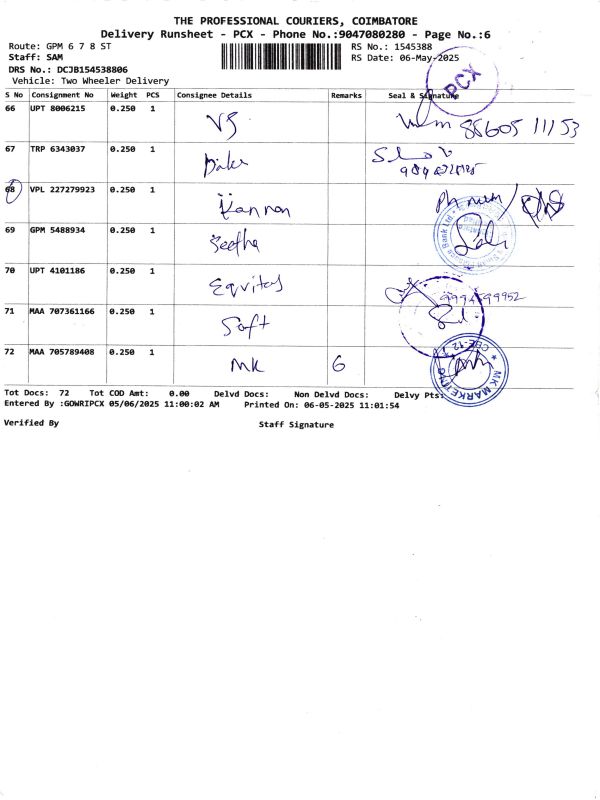 THE PROFESSIONAL COURIERS, COIMBATORE
Delivery Runsheet - PCX - Phone No.:9047080280 - Page No.:6
Route: GPM 6 7 8 ST RS No.: 1545388
Staff: SAM RS Date: 06-May-2025
DRS No.: DCJB154538806
Vehicle: Two Wheeler Delivery
PCX
S No Consignment No Weight PCS Consignee Details Remarks Seal & Signature
66 UPT 8006215 0.250 1 VS 88605 11153
67 TRP 6343037 0.250 1
68 VPL 227279923 0.250 1 Kannan
69 GPM 5488934 0.250 1 Seetha
70 UPT 4101186 0.250 1 Equitas
71 MAA 707361166 0.250 1 Soft
72 MAA 705789408 0.250 1 MK 6
MK MARKETING
Tot Docs: 72 Tot COD Amt: 0.00 Delvd Docs: Non Delvd Docs: Delvy Pts:
Entered By :GOWRIPCX 05/06/2025 11:00:02 AM Printed On: 06-05-2025 11:01:54
Verified By Staff Signature